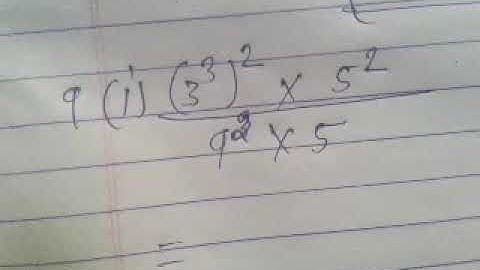 9 (i) (3³)² × 5²
9² × 5
=